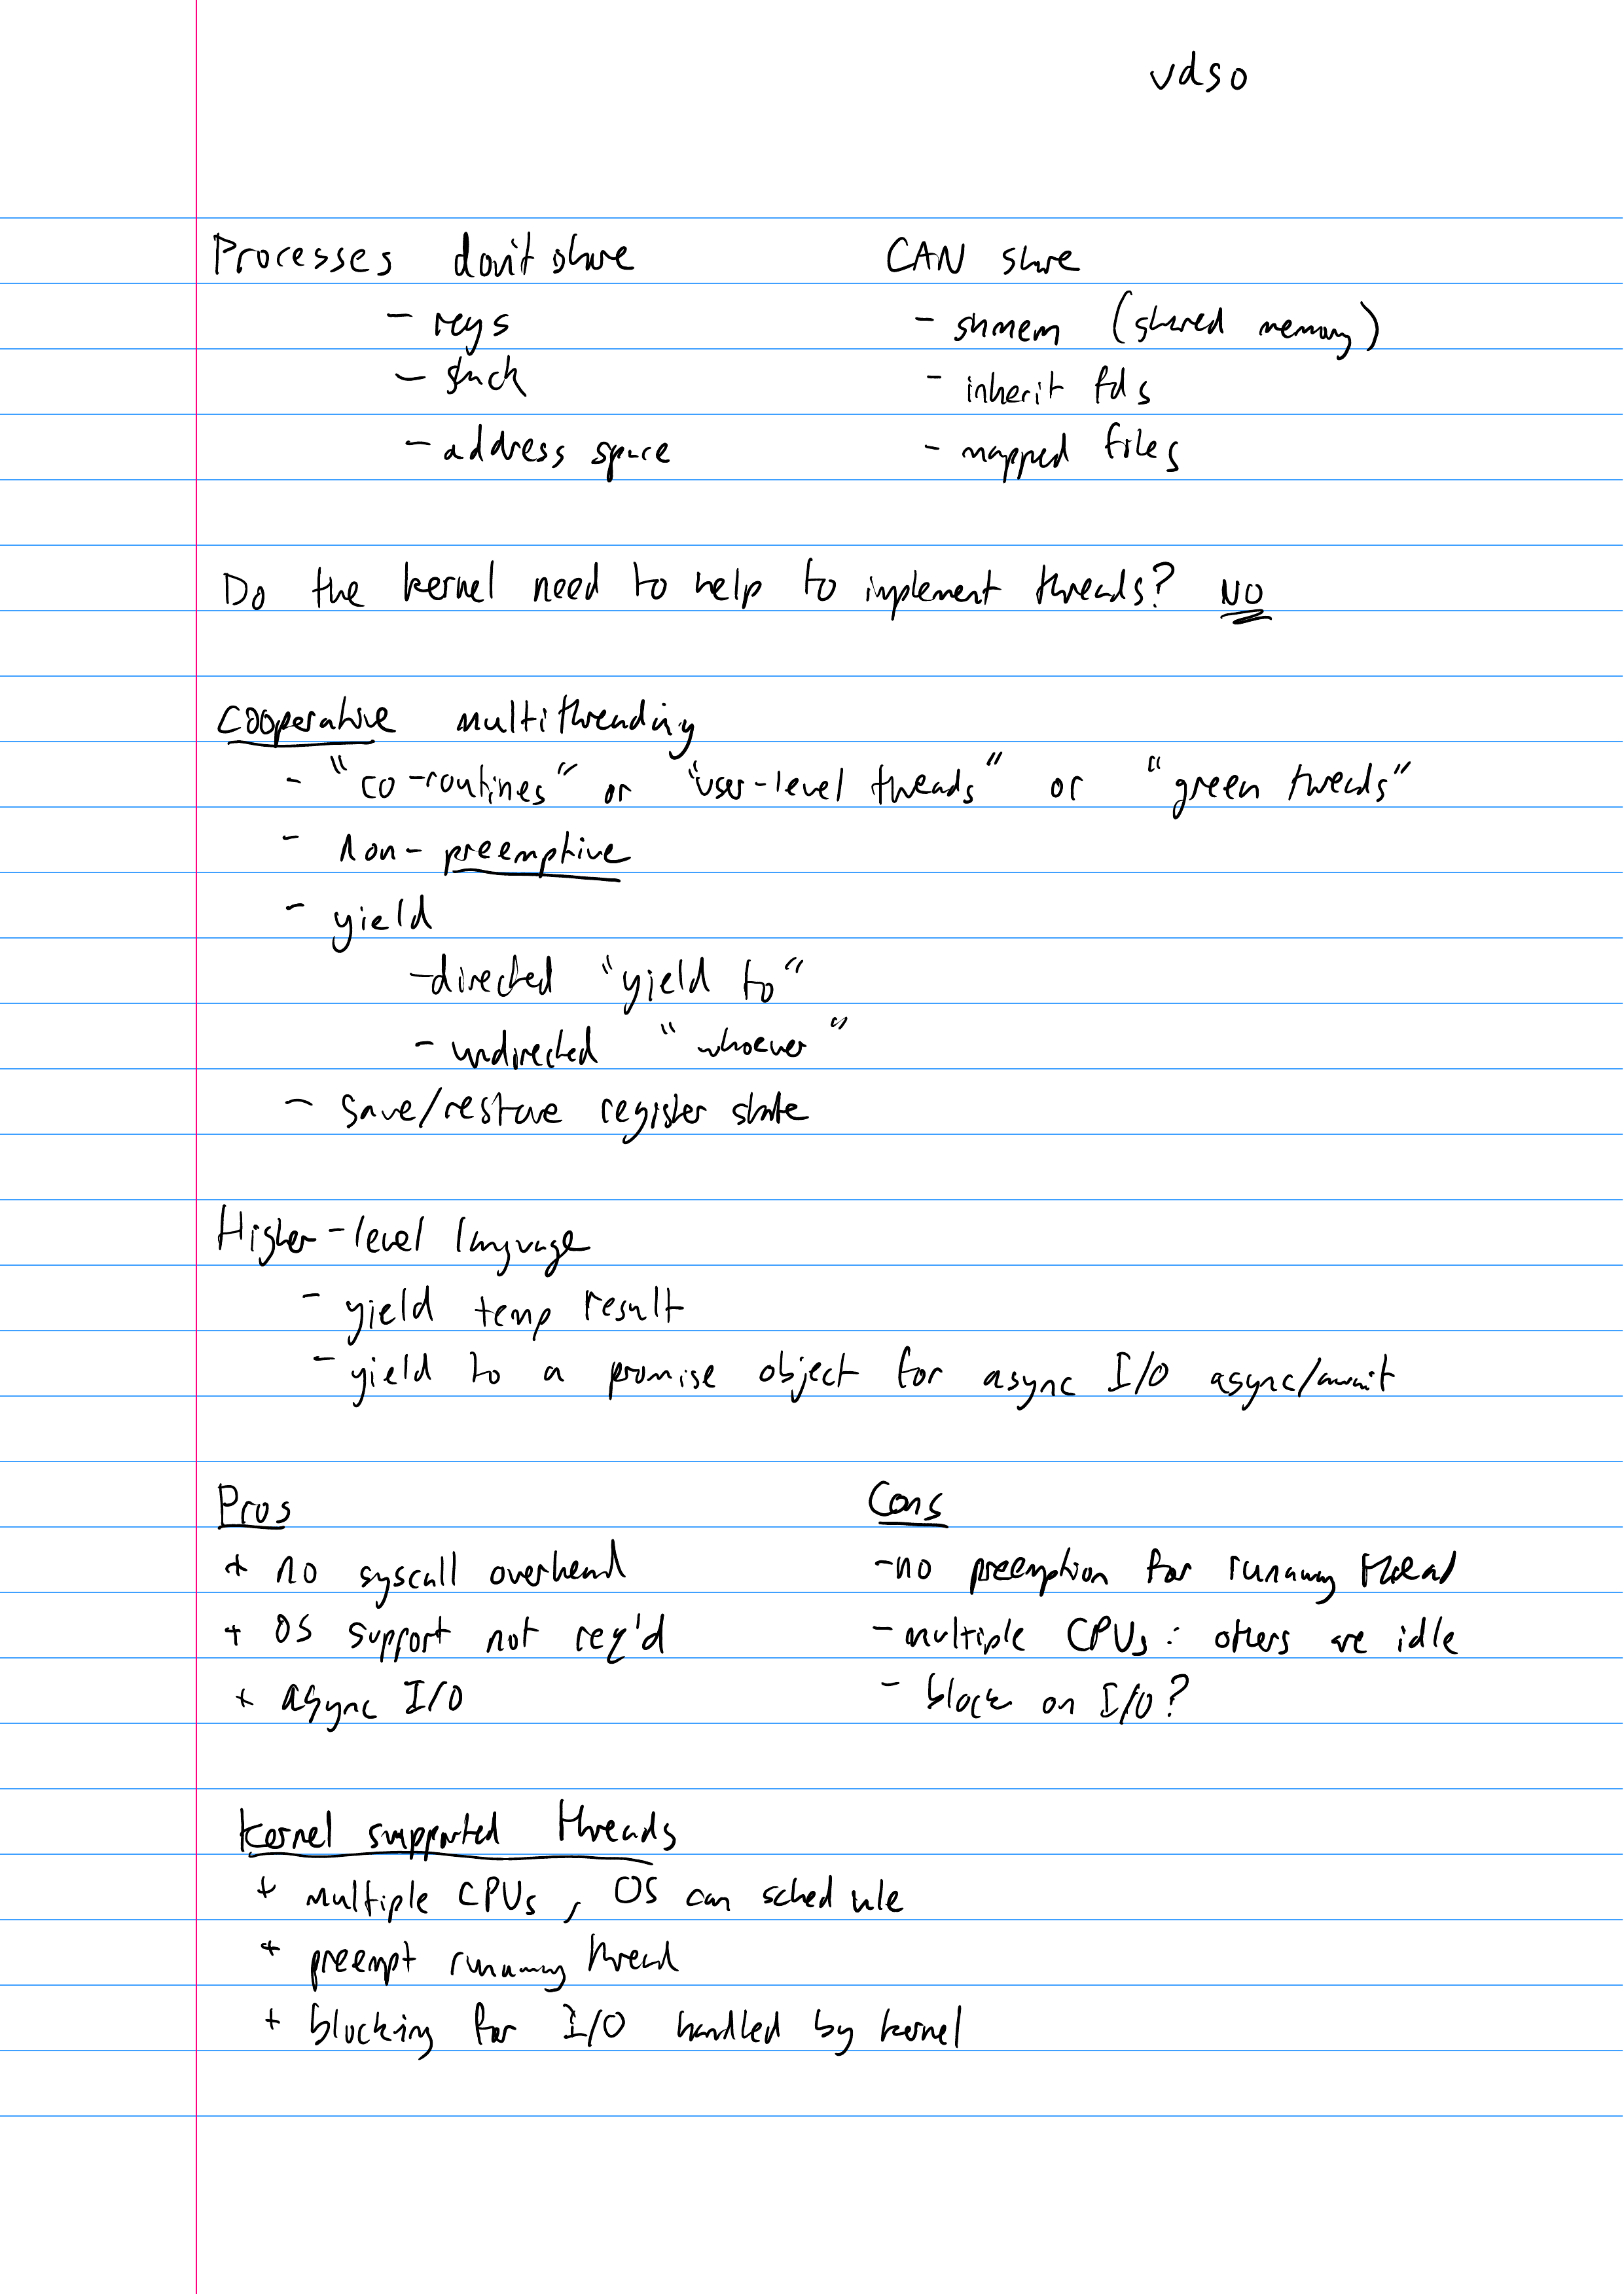 vdso
Processes don't share CAN share
- regs - shmem (shared memory)
- stack - inherit fds
- address space - mapped files
Do the kernel need to help to implement threads? NO
cooperative multithreading
- "co-routines" or "user-level threads" or "green threads"
- non-preemptive
- yield
- directed "yield to"
- undirected "whoever"
- save/restore register state
Higher-level language
- yield temp result
- yield to a promise object for async I/O async/await
Pros Cons
+ no syscall overhead - no preemption for runaway thread
+ OS support not req'd - multiple CPUs: others are idle
+ async I/O - block on I/O?
kernel supported threads
+ multiple CPUs, OS can schedule
+ preempt runaway thread
+ blocking for I/O handled by kernel